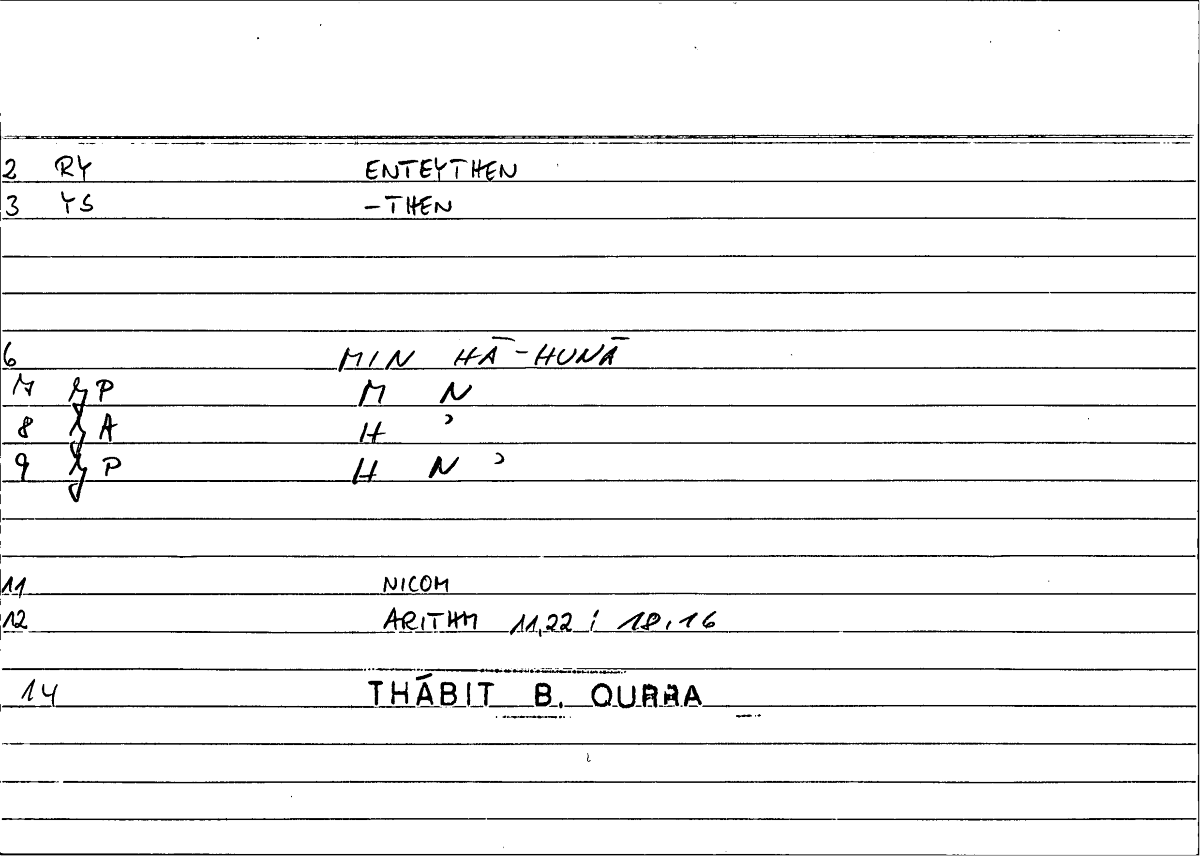 2 RY ENTEYTHEN
3 YS -THEN
6 MIN HĀ-HUNĀ
7 P M N
8 A H ʾ
9 P H N ʾ
11 NICOM
12 ARITHM 11,22 ; 18,16
14 THĀBIT B. QURRA